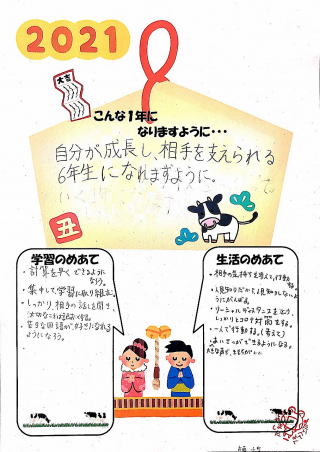 2021
大吉
こんな1年に
なりますように・・・
自分が成長し、相手を支えられる
6年生になれますように。
丑
学習のめあて
・計算を早くできるように
なろう。
・集中して学習に取り組む。
・しっかり、相手の話しを聞き
・苦手な国語が、好きになれる
ようになろう。
生活のめあて
・相手の気持ちを考えて、行動する。
・人見知りだから、人見知りしないよ
うにがんばる。
・ソーシャルディスタンスをとり、
しっかりとコロナ対策をする。
・一人で行動する。(考えて)
・あいさつができるようになる。